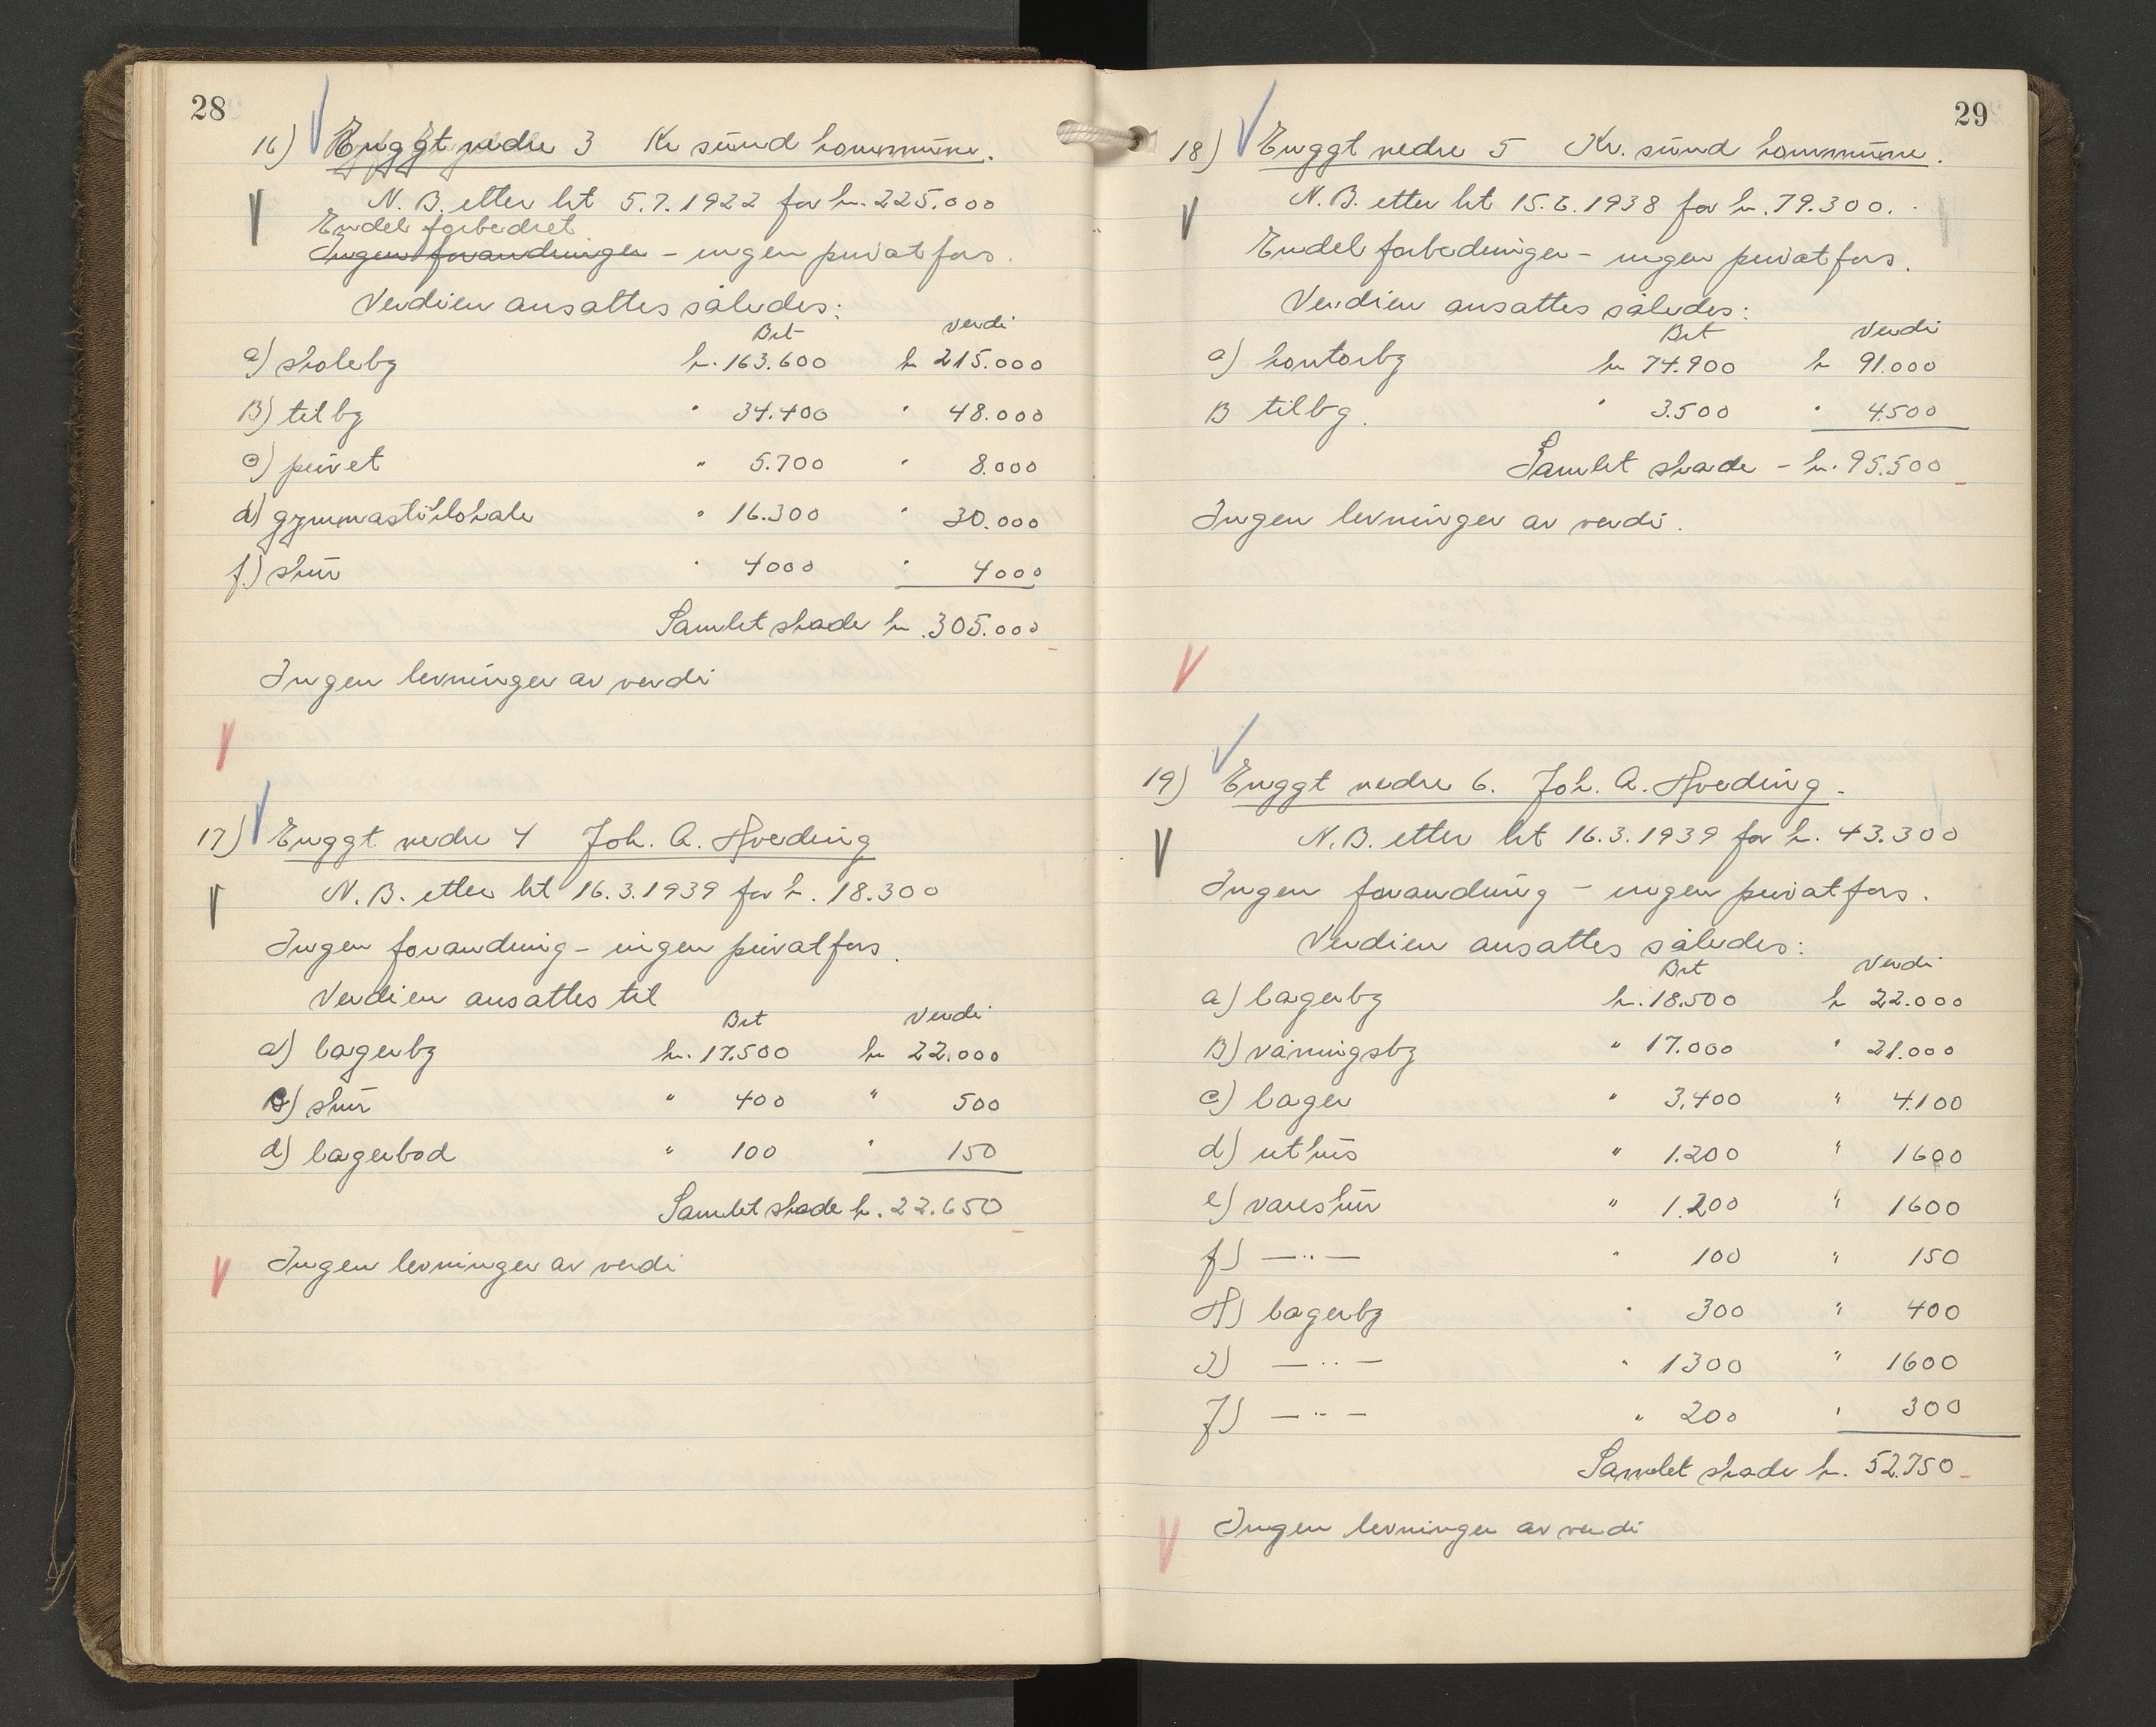 28
16) Enggt nedre 3 Kr sund kommune.
N.B. etter bt 5.7.1922 for kr. 225.000
Endel forbedret
Ingen forandringer - ingen privatfors.
Verdien ansattes således:
Bt verdi
a) skolebg kr. 163.600 kr 215.000
B) tilbg " 34.400 " 48.000
c) privet " 5.700 " 8.000
d) gymnastiklokale " 16.300 " 30.000
f) skur " 4000 " 4000
Samlet skade kr. 305.000
Ingen levninger av verdi
17) Enggt nedre 4 Joh. A. Hveding
N.B. etter bt 16.3.1939 for kr. 18.300
Ingen forandring - ingen privatfors.
Verdien ansattes til
Bt Verdi
a) lagerbg kr. 17.500 kr 22.000
B) skur " 400 " 500
d) lagerbod " 100 " 150
Samlet skade kr. 22.650
Ingen levninger av verdi
29
18) Enggt nedre 5 Kr. sund kommune.
N.B. etter bt 15.6.1938 for kr. 79.300.
Endel forbedringer - ingen privatfors.
Verdien ansattes således:
Bt Verdi
a) kontorbg kr 74.900 kr 91.000
B tilbg. " 3.500 " 4.500
Samlet skade - kr. 95.500
Ingen levninger av verdi.
19) Enggt nedre 6. Joh. A. Hveding.
N.B. etter bt 16.3.1939 for kr. 43.300
Ingen forandring - ingen privatfors.
Verdien ansattes således:
Bt Verdi
a) lagerbg kr. 18.500 kr 22.000
B) våningsbg " 17.000 " 21.000
c) lager " 3.400 " 4.100
d) uthus " 1.200 " 1600
e) vareskur " 1.200 " 1600
f) —"— " 100 " 150
H) lagerbg " 300 " 400
I) —"— " 1300 " 1600
J) —"— " 200 " 300
Samlet skade kr. 52.750
Ingen levninger av verdi